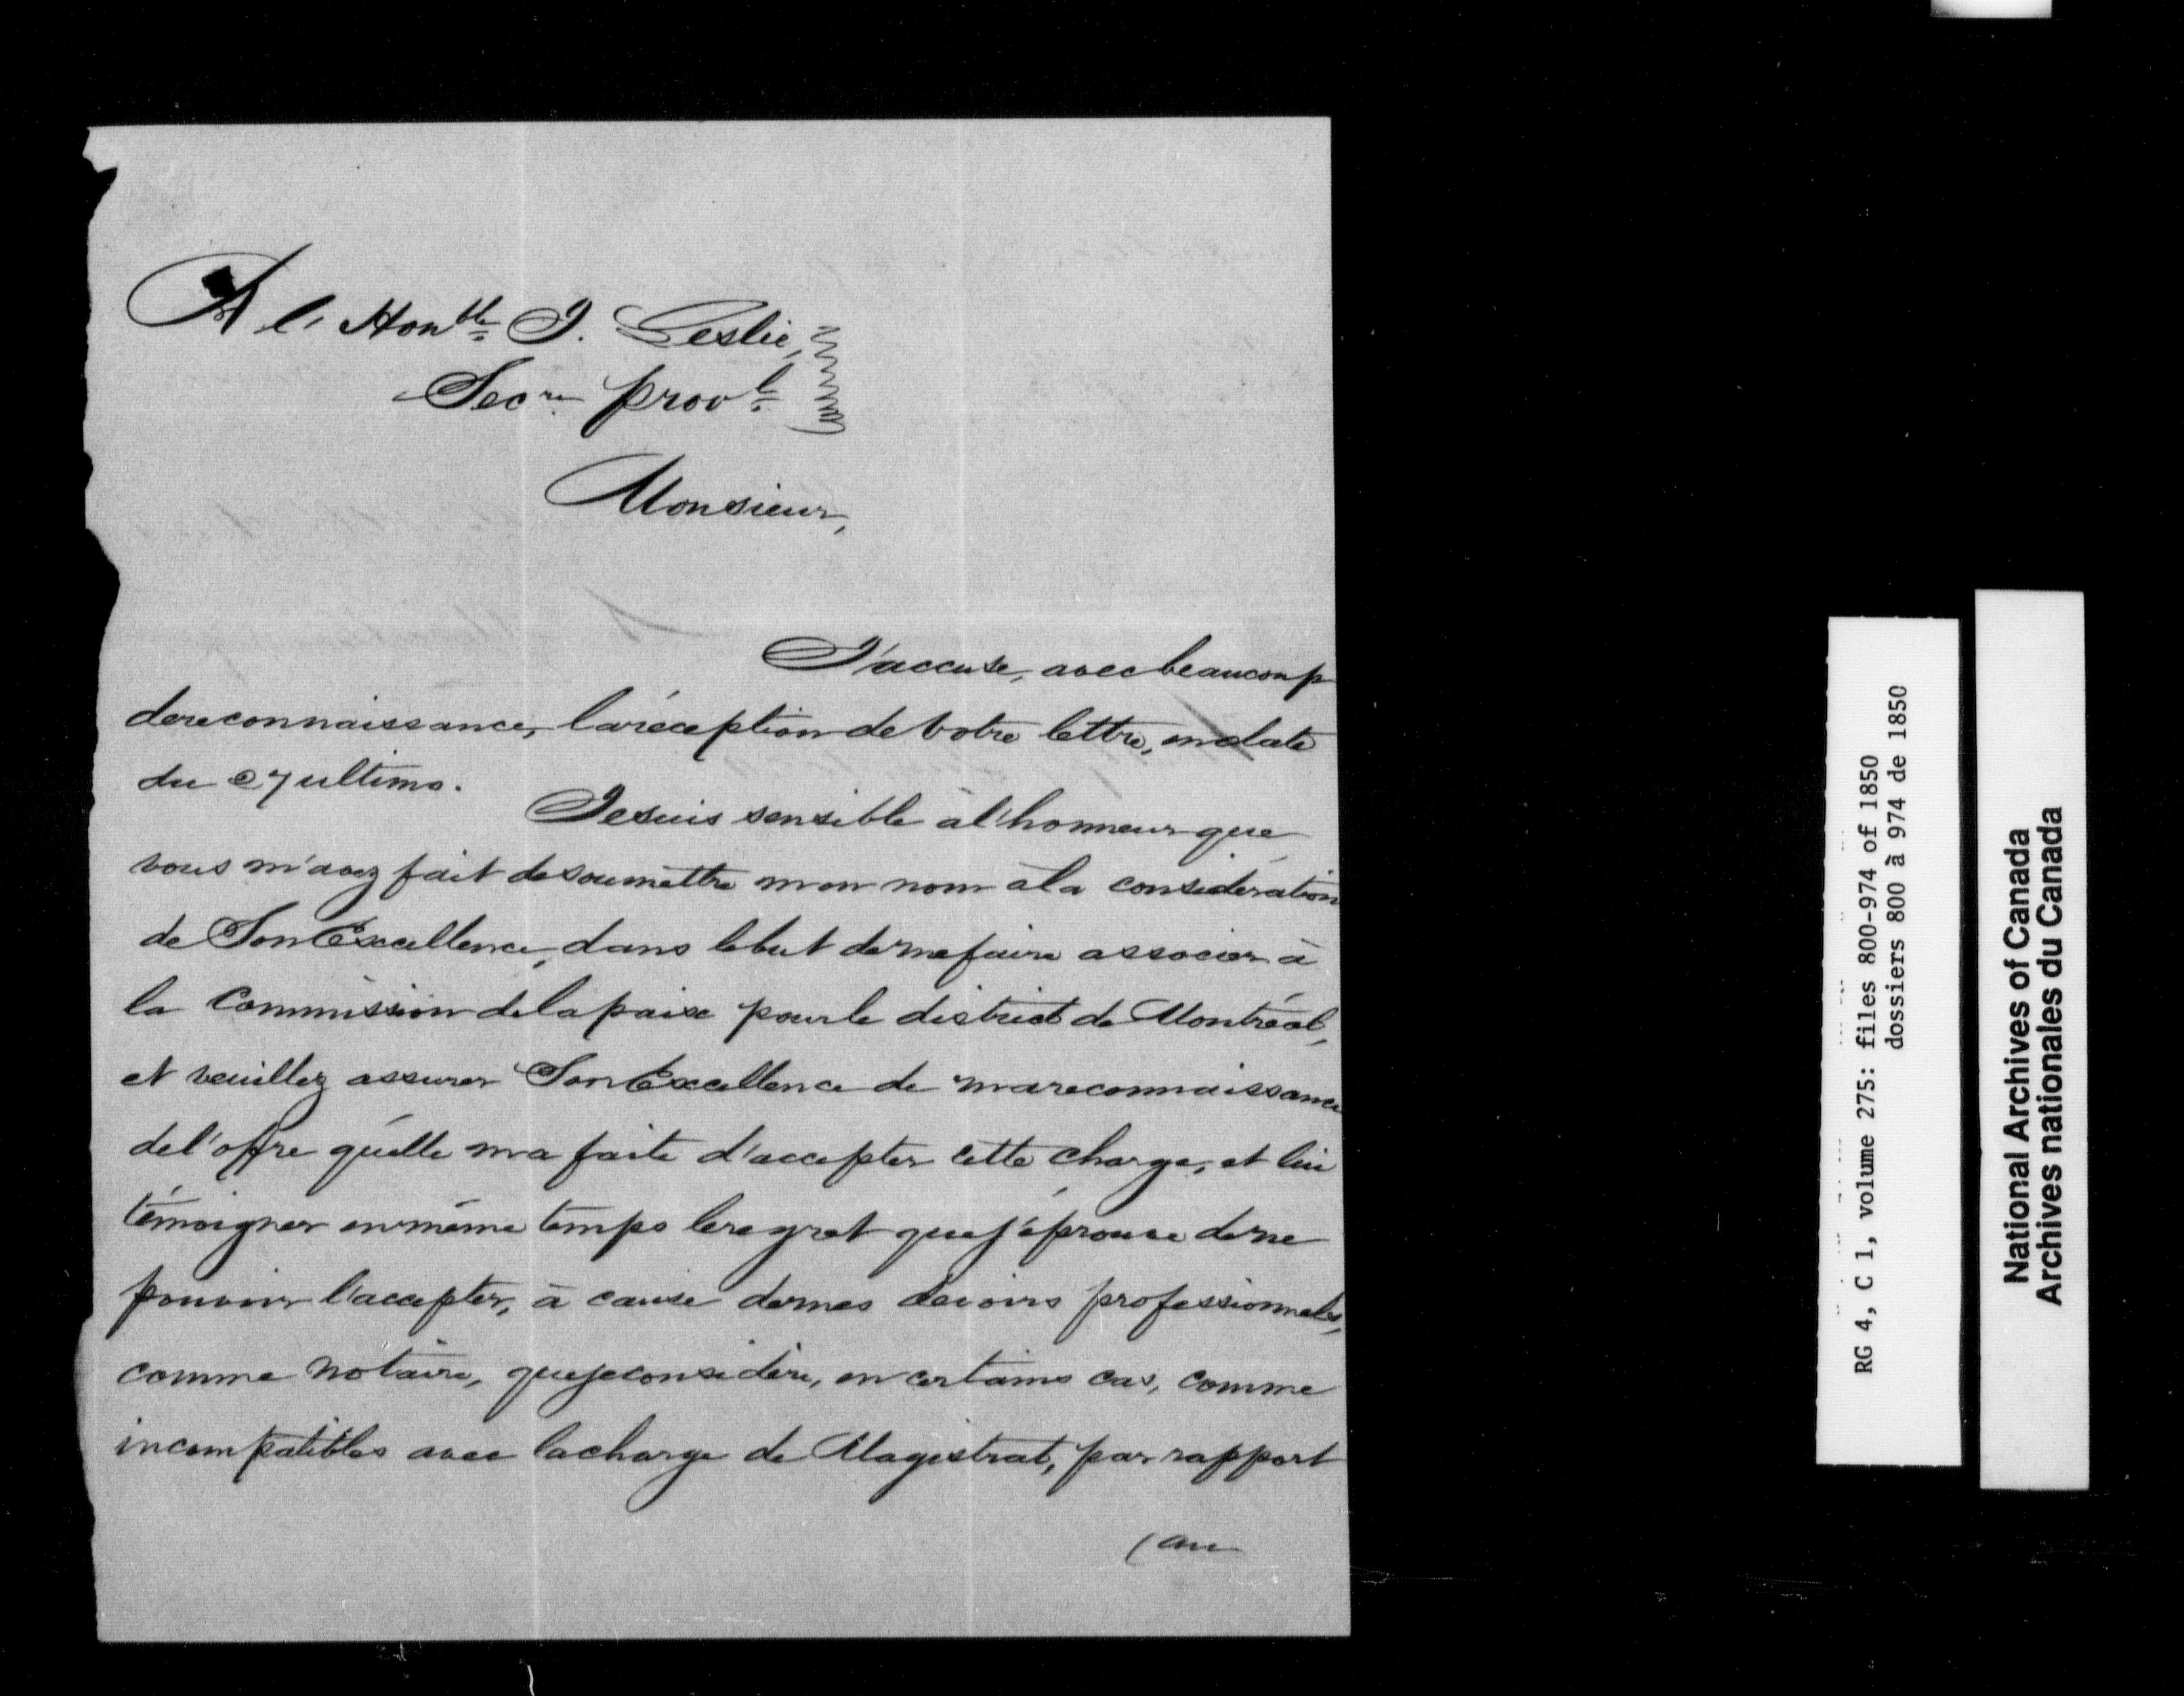 A l'Honble J. Leslie,
Secre provl
Monsieur,
J'accuse, avec beaucoup
de reconnaissance, la réception de votre lettre, en date
du 27 ultimo.
Je suis sensible à l'honneur que
vous m'avez fait de soumettre mon nom à la considération
de Son Excellence, dans le but de me faire associer à
la Commission de la paix pour le district de Montréal,
et veuillez assurer Son Excellence de ma reconnaissance
de l'offre qu'elle m'a faite d'accepter cette charge, et lui
témoigner en même temps le regret que j'éprouve de ne
pouvoir l'accepter, à cause de mes devoirs professionnels,
comme notaire, que je considère, en certains cas, comme
incompatibles avec la charge de Magistrat, par rapport
(au
RG 4, C 1, volume 275: files 800-974 of 1850
dossiers 800 à 974 de 1850
National Archives of Canada
Archives nationales du Canada